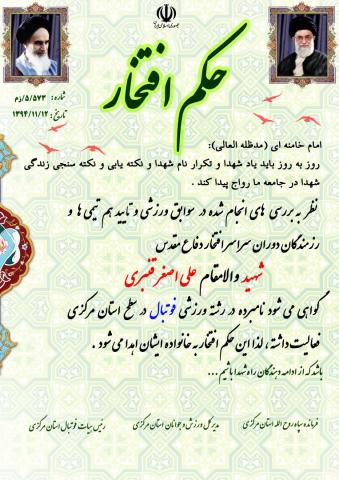 جمهوری اسلامی ایران
حکم افتخار
شماره: ۵/۵۷۳/زم
تاریخ: ۱۳۹۴/۱۱/۱۲
امام خامنه ای (مدظله العالی):
روز به روز باید یاد شهدا و تکرار نام شهدا و نکته یابی و نکته سنجی زندگی
شهدا در جامعه ما رواج پیدا کند .
نظر به بررسی های انجام شده در سوابق ورزشی و تایید هم تیمی ها و
رزمندگان دوران سراسر افتخار دفاع مقدس
شهید والامقام علی اصغر قنبری
گواهی می شود نامبرده در رشته ورزشی فوتبال در سطح استان مرکزی
فعالیت داشته ، لذا این حکم افتخار به خانواده ایشان اهدا می شود .
باشد که از ادامه دهندگان راه شهدا باشیم...
فرمانده سپاه روح الله استان مرکزی
مدیر کل ورزش و جوانان استان مرکزی
رئیس هیات فوتبال استان مرکزی